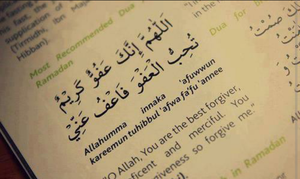 this fast the
(Tirmidhi, Ibn
Hibban).
Most Recommended Dua for
Ramadan
اَللّٰهُمَّ إِنَّكَ عَفُوٌّ كَرِيْمٌ
تُحِبُّ الْعَفْوَ فَاعْفُ عَنِّيْ
Allahumma innaka 'afuwwun
kareemun tuhibbul 'afwa fa'fu 'annee
"O Allah, You are the best forgiver,
ficent and merciful. You
giveness so forgive me."
in Ramadan
Dua for